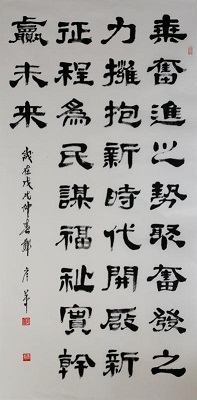 乘奮進之勢聚奮發之
力擁抱新時代開啟新
征程為民謀福祉實幹
贏未來
歲在戊戌仲春鄭彥